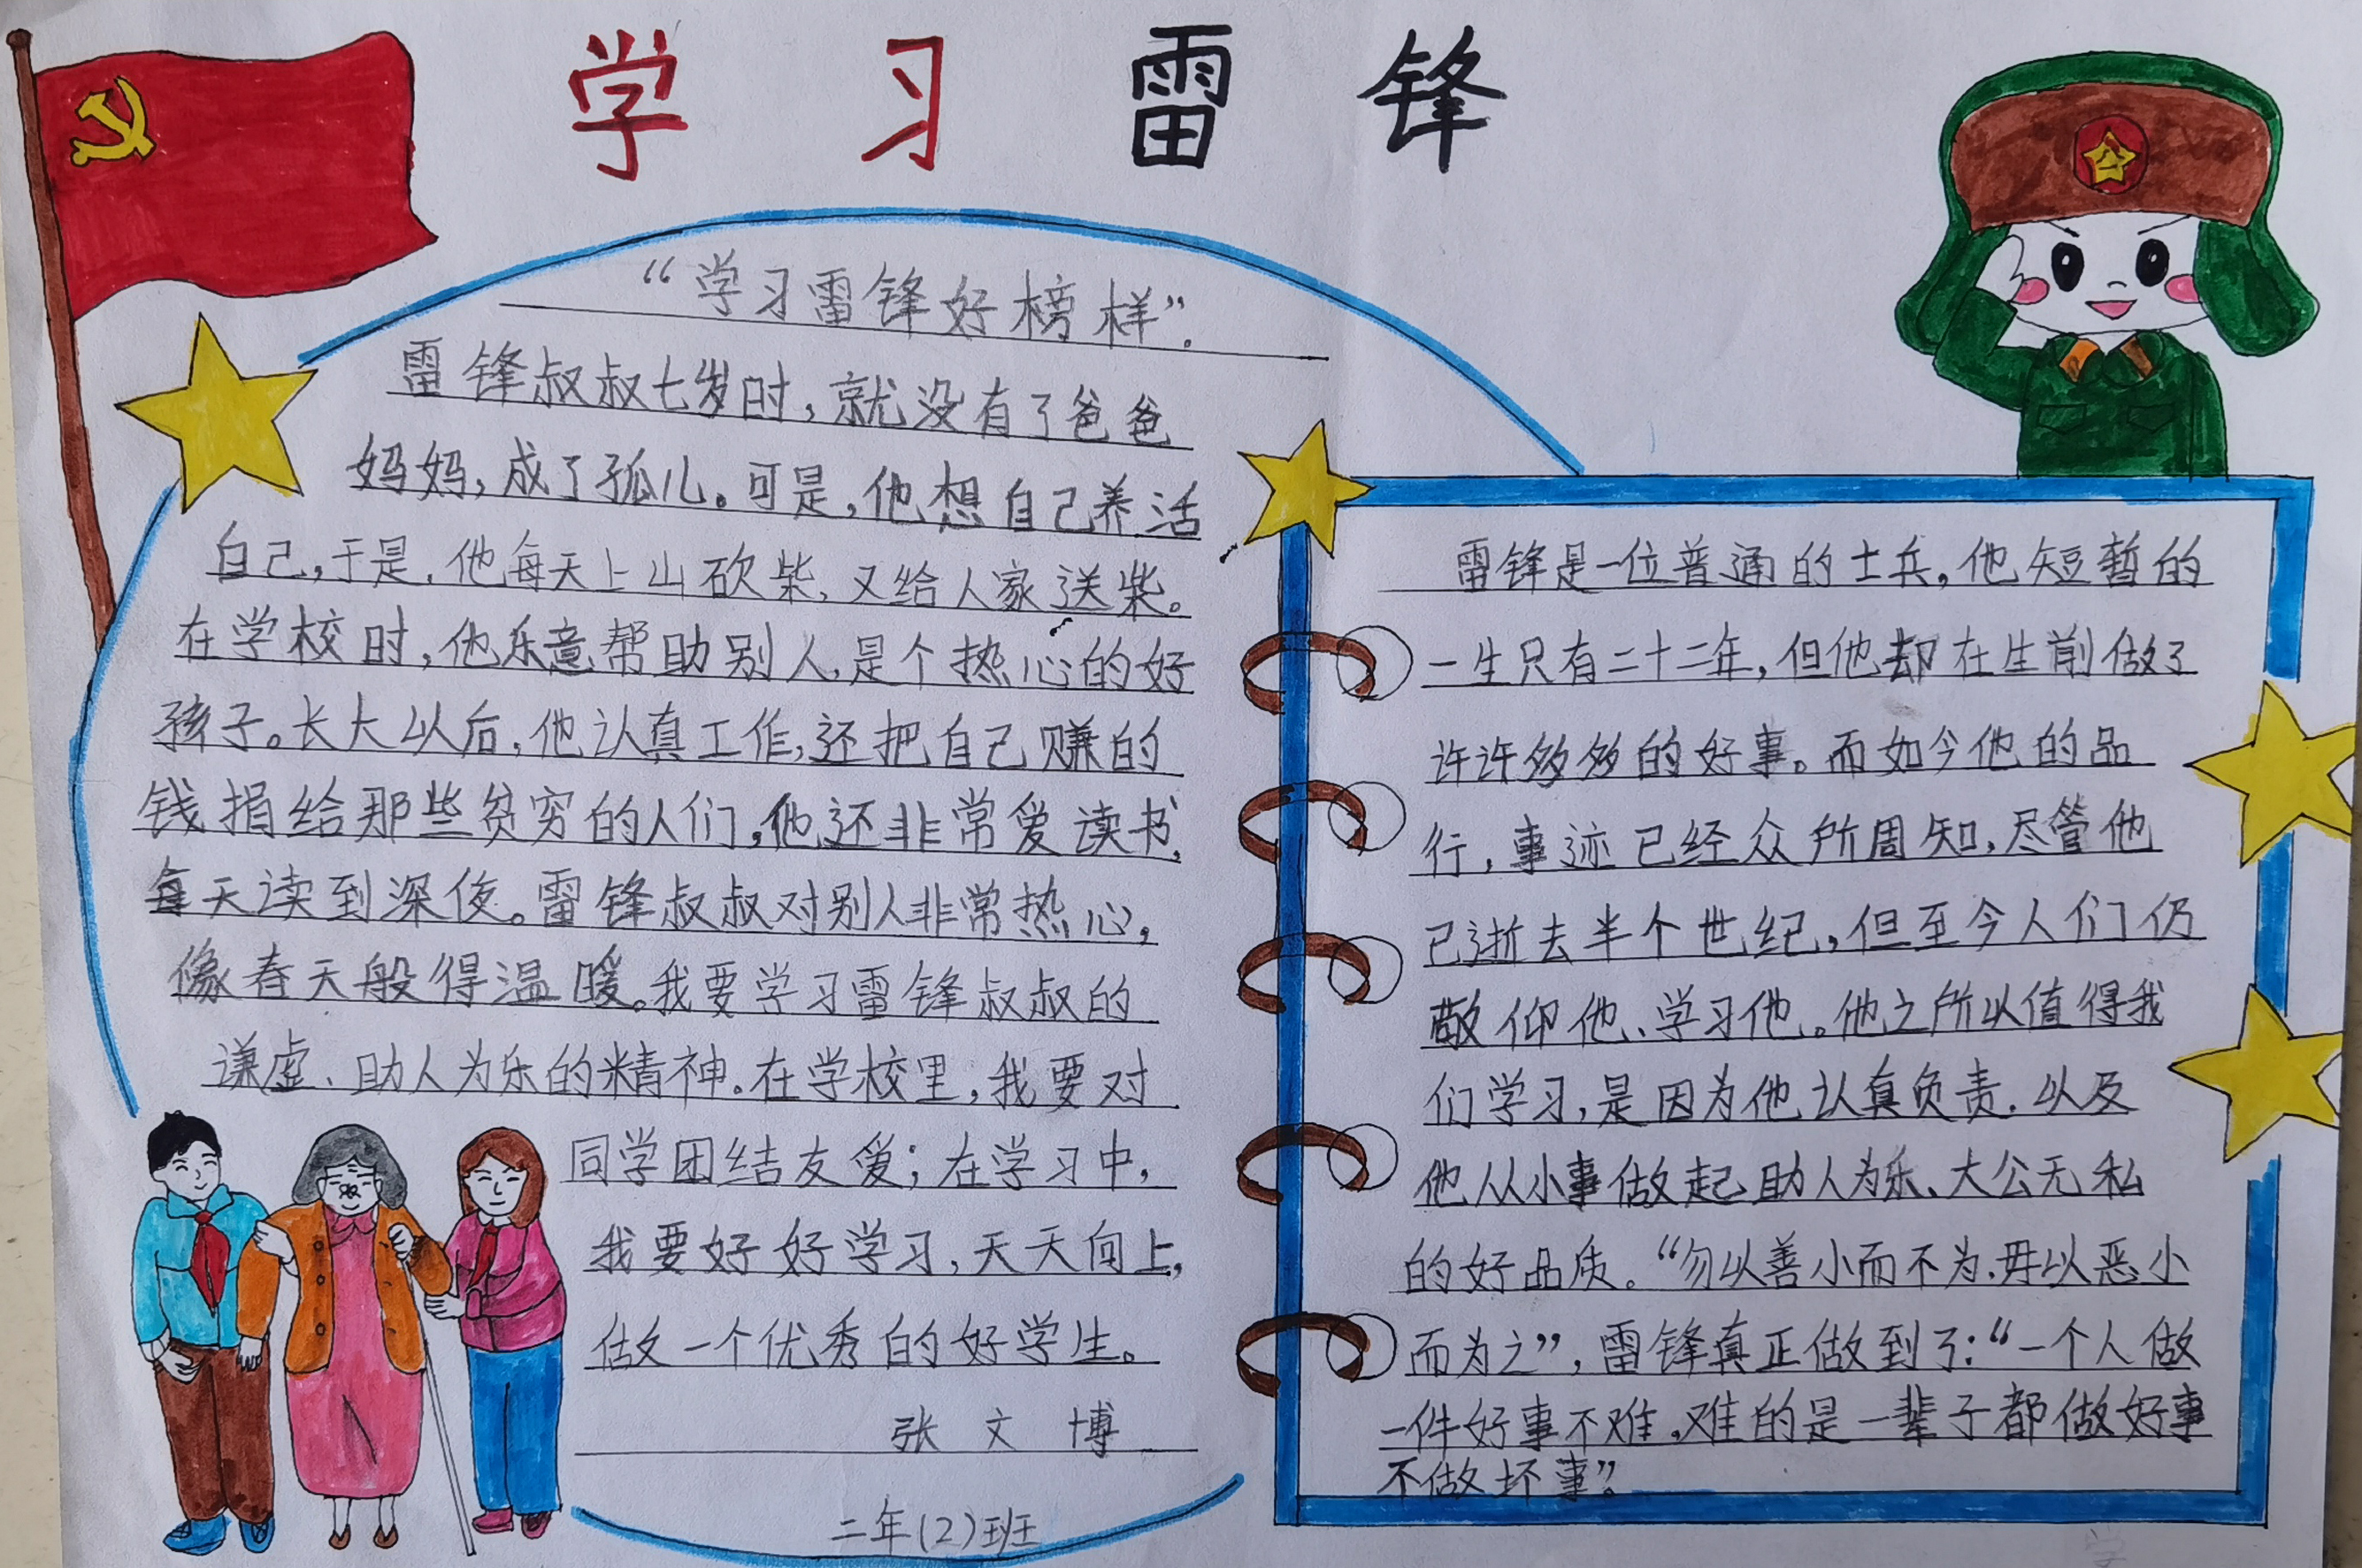 学习雷锋
“学习雷锋好榜样”.
雷锋叔叔七岁时,就没有了爸爸
妈妈,成了孤儿。可是,他想自己养活
自己,于是,他每天上山砍柴,又给人家送柴。
在学校时,他乐意帮助别人,是个热心的好
孩子。长大以后,他认真工作,还把自己赚的
钱捐给那些贫穷的人们,他还非常爱读书,
每天读到深夜。雷锋叔叔对别人非常热心,
像春天般得温暖。我要学习雷锋叔叔的
谦虚、助人为乐的精神。在学校里,我要对
同学团结友爱;在学习中,
我要好好学习,天天向上,
做一个优秀的好学生。
张文博
二年(2)班
雷锋是一位普通的士兵,他短暂的
一生只有二十二年,但他却在生前做了
许许多多的好事。而如今他的品
行,事迹已经众所周知,尽管他
已逝去半个世纪,但至今人们仍
敬仰他、学习他。他之所以值得我
们学习,是因为他认真负责.以及
他从小事做起助人为乐、大公无私
的好品质。“勿以善小而不为.毋以恶小
而为之”,雷锋真正做到了:“一个人做
一件好事不难,难的是一辈子都做好事
不做坏事”。